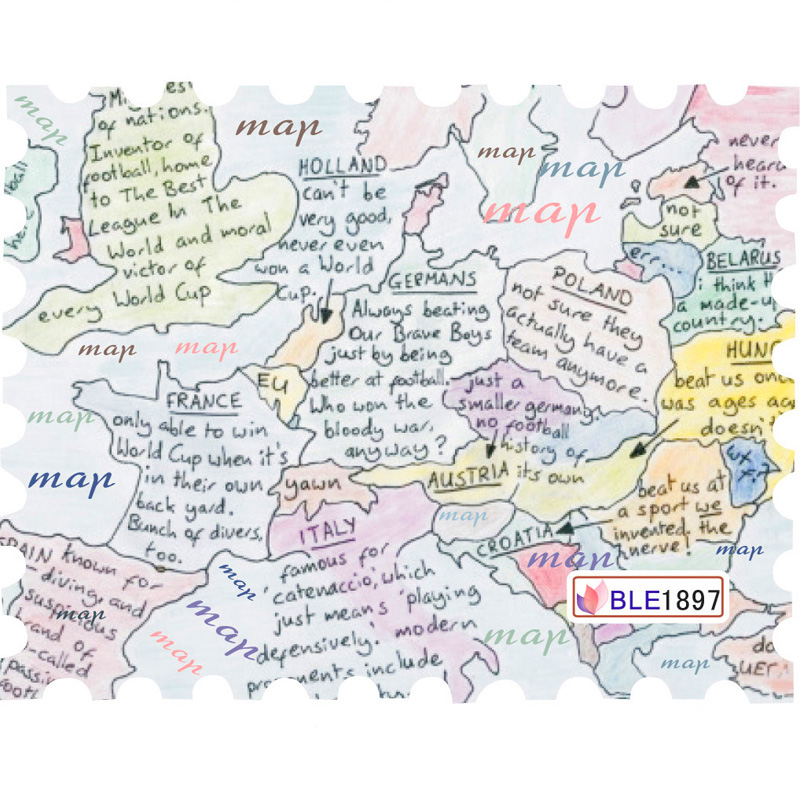 of nations.
Inventor of
football, home
to The Best
League In The
World and moral
victor of
every World Cup
map
map
HOLLAND
can't be
very good,
never even
won a World
Cup.
map
map
map
never
heard
of it.
not
sure
err...
BELARUS
i think
a made-up
country.
GERMANS
Always beating
Our Brave Boys
just by being
better at football.
Who won the
bloody war,
anyway?
POLAND
not sure they
actually have a
team anymore.
map
map
EU
FRANCE
only able to win
World Cup when it's
in their own
back yard.
Bunch of divers,
too.
map
map
just a
smaller germany.
no football
history of
its own
AUSTRIA
HUNG
beat us
was ages
doesn't
wtf?
yawn
ITALY
famous for
'catenaccio', which
just means 'playing
defensively.' modern
include
map
CROATIA
beat us at
a sport we
invented, the
nerve!
map
map
BLE1897
SPAIN known for
diving, and
suspicious
brand of
so-called
map
map
map
map
map
map